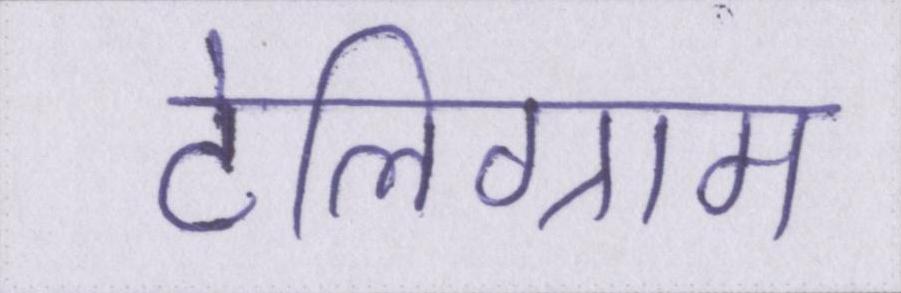 टेलिग्राम